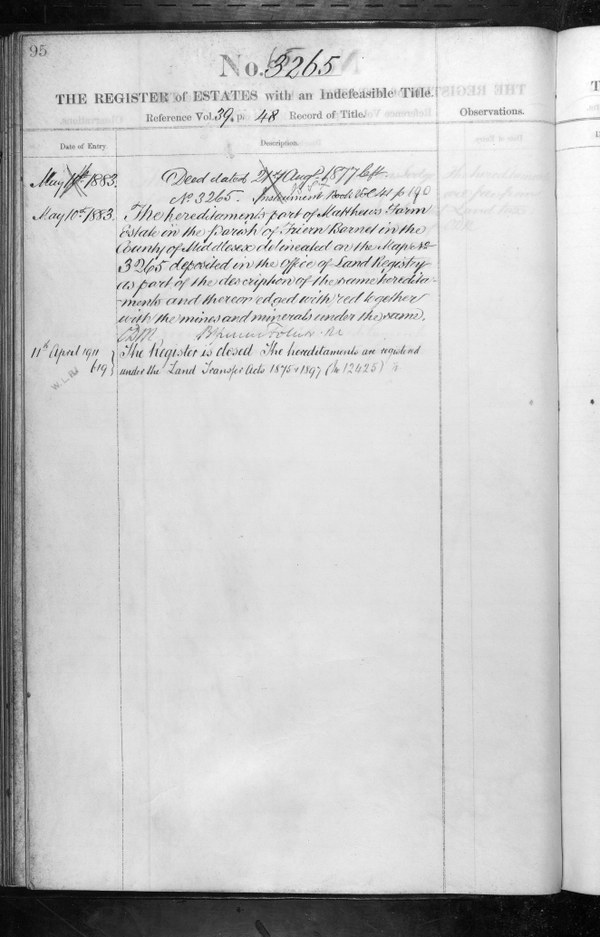 95
No. 3265
THE REGISTER of ESTATES with an Indefeasible Title.
Reference Vol. 39. p. 48 Record of Title.
Observations.
Date of Entry
Description.
May 1883.
Deed dated Augt. 1877 left
No 3265. Instrument Book Vol 41 p 190
May 10th 1883.
The hereditaments part of Matthews Farm
Estate in the Parish of Friern Barnet in the
County of Middlesex delineated on the Map No
3265 deposited in the Office of Land Registry
as part of the description of the same heredita-
-ments and thereon edged with red together
with the mines and minerals under the same.
11th April 1911
619
The Register is closed The hereditaments are registered
under the Land Transfer Acts 1875 & 1897 (No 12425)